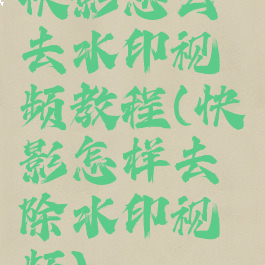 快影怎么
去水印视
频教程(快
影怎样去
除水印视
频)